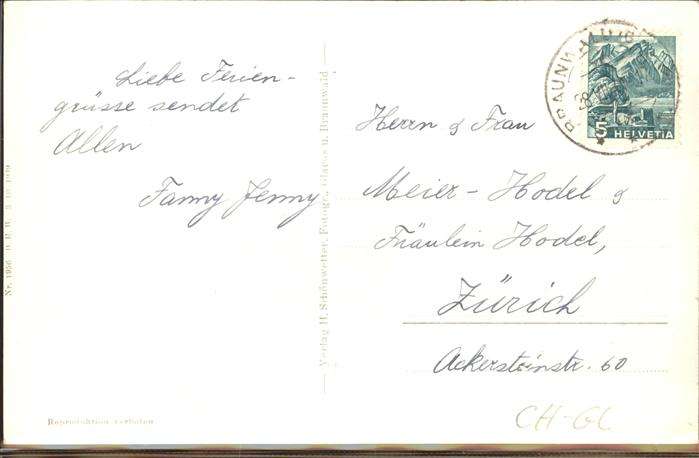 Liebe Ferien-
grüsse sendet
Allen
Fanny Jenny
Herrn & Frau
Meier-Hodel &
Fräulein Hodel,
Zürich
Ackersteinstr. 60
BRAUNWALD
5 HELVETIA
Verlag H. Schönwetter, Fotogr., Glarus u. Braunwald
Nr. 1956
Reproduktion verboten
CH-GL